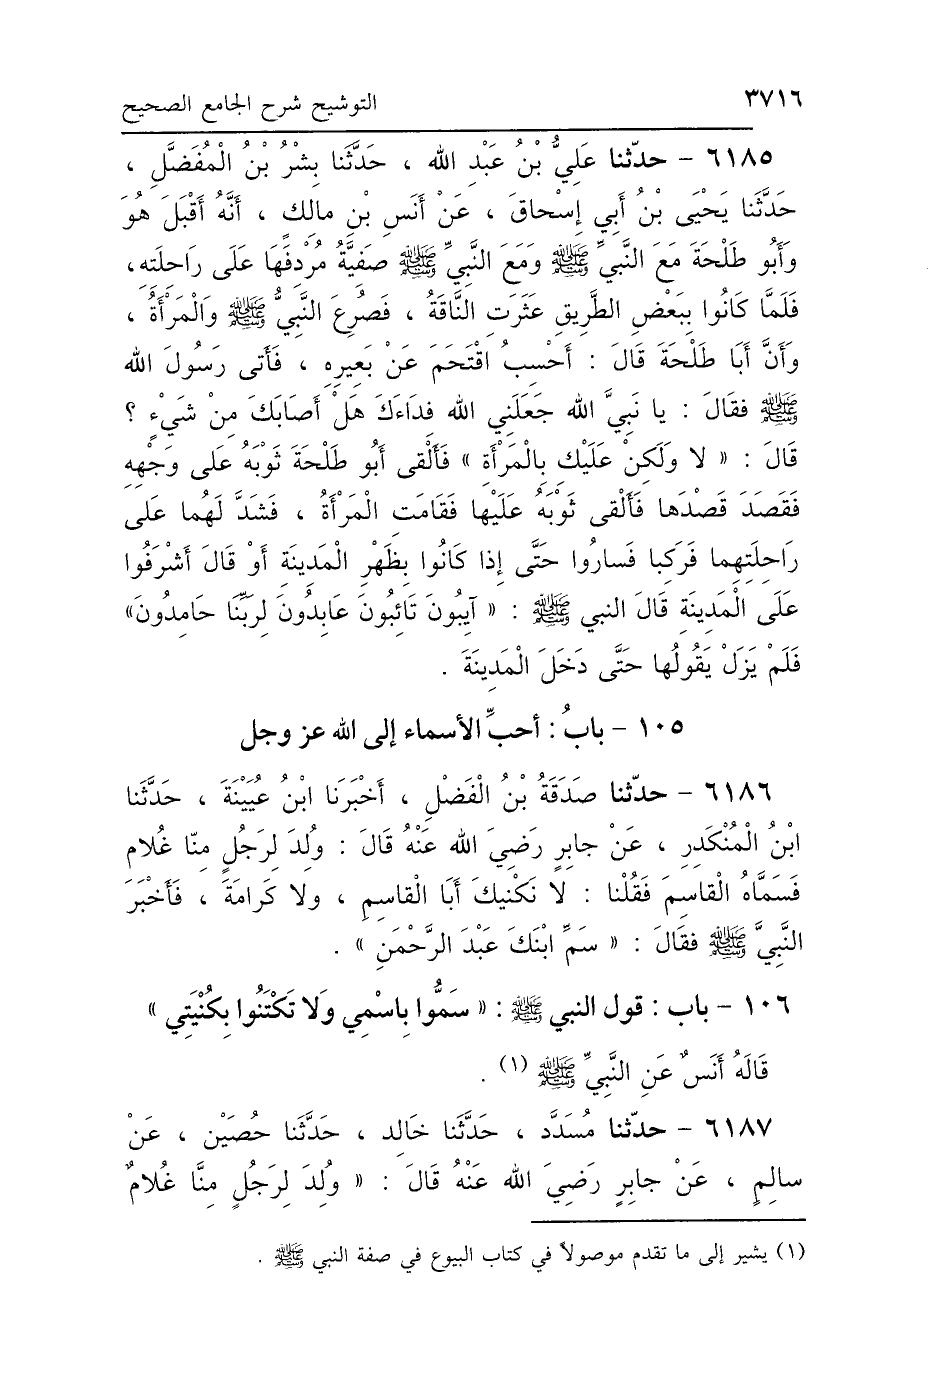 ٣٧١٦ التوشيح شرح الجامع الصحيح
٦١٨٥ - حدّثنا عَلِيُّ بْنُ عَبْدِ الله ، حَدَّثَنا بِشْرُ بْنُ الْمُفَضَّلِ ،
حَدَّثَنا يَحْيَى بْنُ أبي إسْحاقَ ، عَنْ أنَسِ بْنِ مالِكٍ ، أنَّهُ أقْبَلَ هُوَ
وَأبُو طَلْحَةَ مَعَ النَّبِيِّ ﷺ ومَعَ النَّبِيِّ ﷺ صَفِيَّةُ مُرْدِفَهَا عَلَى رَاحِلَتِهِ،
فَلَمَّا كَانُوا بِبَعْضِ الطَّرِيقِ عَثَرَتِ النَّاقَةُ ، فَصُرِعَ النَّبِيُّ ﷺ والْمَرْأةُ ،
وأنَّ أبَا طَلْحَةَ قَالَ : أحْسِبُ اقْتَحَمَ عَنْ بَعِيرِهِ ، فَأتى رَسُولَ الله
ﷺ فقَالَ : يا نَبِيَّ الله جَعَلَنِي الله فِدَاءَكَ هَلْ أصَابَكَ مِنْ شَيْءٍ ؟
قَالَ : « لا ولَكِنْ عَلَيْكَ بِالمَرْأةِ » فَألْقى أبُو طَلْحَةَ ثَوْبَهُ عَلى وَجْهِهِ
فَقَصَدَ قَصْدَها فَألْقى ثَوْبَهُ عَلَيْها فَقَامَتِ الْمَرْأةُ ، فَشَدَّ لَهُما عَلى
رَاحِلَتِهِما فَرَكِبا فَسارُوا حَتَّى إذا كَانُوا بِظَهْرِ الْمَدِينَةِ أوْ قَالَ أشْرَفُوا
عَلَى الْمَدِينَةِ قَالَ النبي ﷺ : « آيِبُونَ تَائِبُونَ عَابِدُونَ لِرَبِّنَا حَامِدُونَ»
فَلَمْ يَزَلْ يَقُولُها حَتَّى دَخَلَ الْمَدِينَةَ .
١٠٥ - بابُ : أحبِّ الأسماء إلى الله عز وجل
٦١٨٦ - حدّثنا صَدَقَةُ بْنُ الْفَضْلِ ، أخْبَرَنا ابنُ عُيَيْنَةَ ، حَدَّثَنا
ابْنُ الْمُنْكَدِرِ ، عَنْ جابِرٍ رَضِيَ الله عَنْهُ قَالَ : وُلِدَ لِرَجُلٍ مِنّا غُلام
فَسَمَّاهُ الْقاسِمَ فَقُلْنا : لا نَكْنِيكَ أبَا الْقاسِمِ ، ولا كَرامَةَ ، فَأخْبَرَ
النَّبِيَّ ﷺ فقَالَ : « سَمِّ ابْنَكَ عَبْدَ الرَّحْمَنِ » .
١٠٦ - باب : قول النبي ﷺ : « سَمُّوا باسْمِي وَلا تَكْتَنُوا بِكُنْيَتِي »
قَالَهُ أنَسٌ عَنِ النَّبِيِّ ﷺ (١) .
٦١٨٧ - حدّثنا مُسَدَّد ، حَدَّثَنا خالِد ، حَدَّثَنا حُصَيْن ، عَنْ
سالِمٍ ، عَنْ جابِرٍ رَضِيَ الله عَنْهُ قَالَ : « وُلِدَ لِرَجُلٍ مِنَّا غُلامٌ
(١) يشير إلى ما تقدم موصولاً في كتاب البيوع في صفة النبي ﷺ .